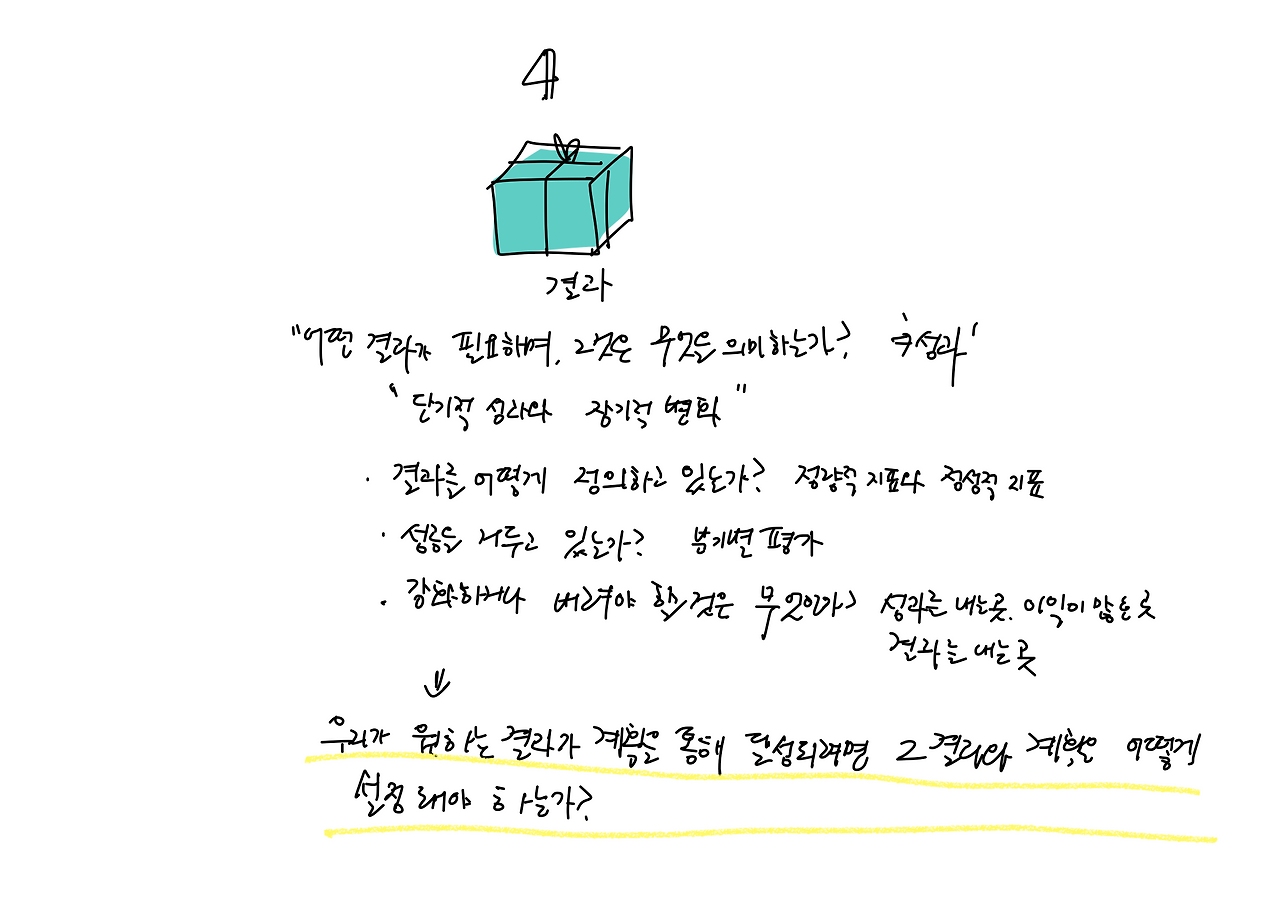 4
결과
"어떤 결과가 필요하며, 그것은 무엇을 의미하는가? → '성과'
"단기적 성과와 장기적 변화"
· 결과를 어떻게 정의하고 있는가? 정량적 지표와 정성적 지표
· 성공을 거두고 있는가? 분기별 평가
· 강화하거나 버려야 할 것은 무엇인가? 성과를 내는 곳. 이익이 많은 곳
결과를 내는 곳
↓
우리가 원하는 결과가 계획을 통해 달성되려면 그 결과와 계획은 어떻게
설정해야 하는가?